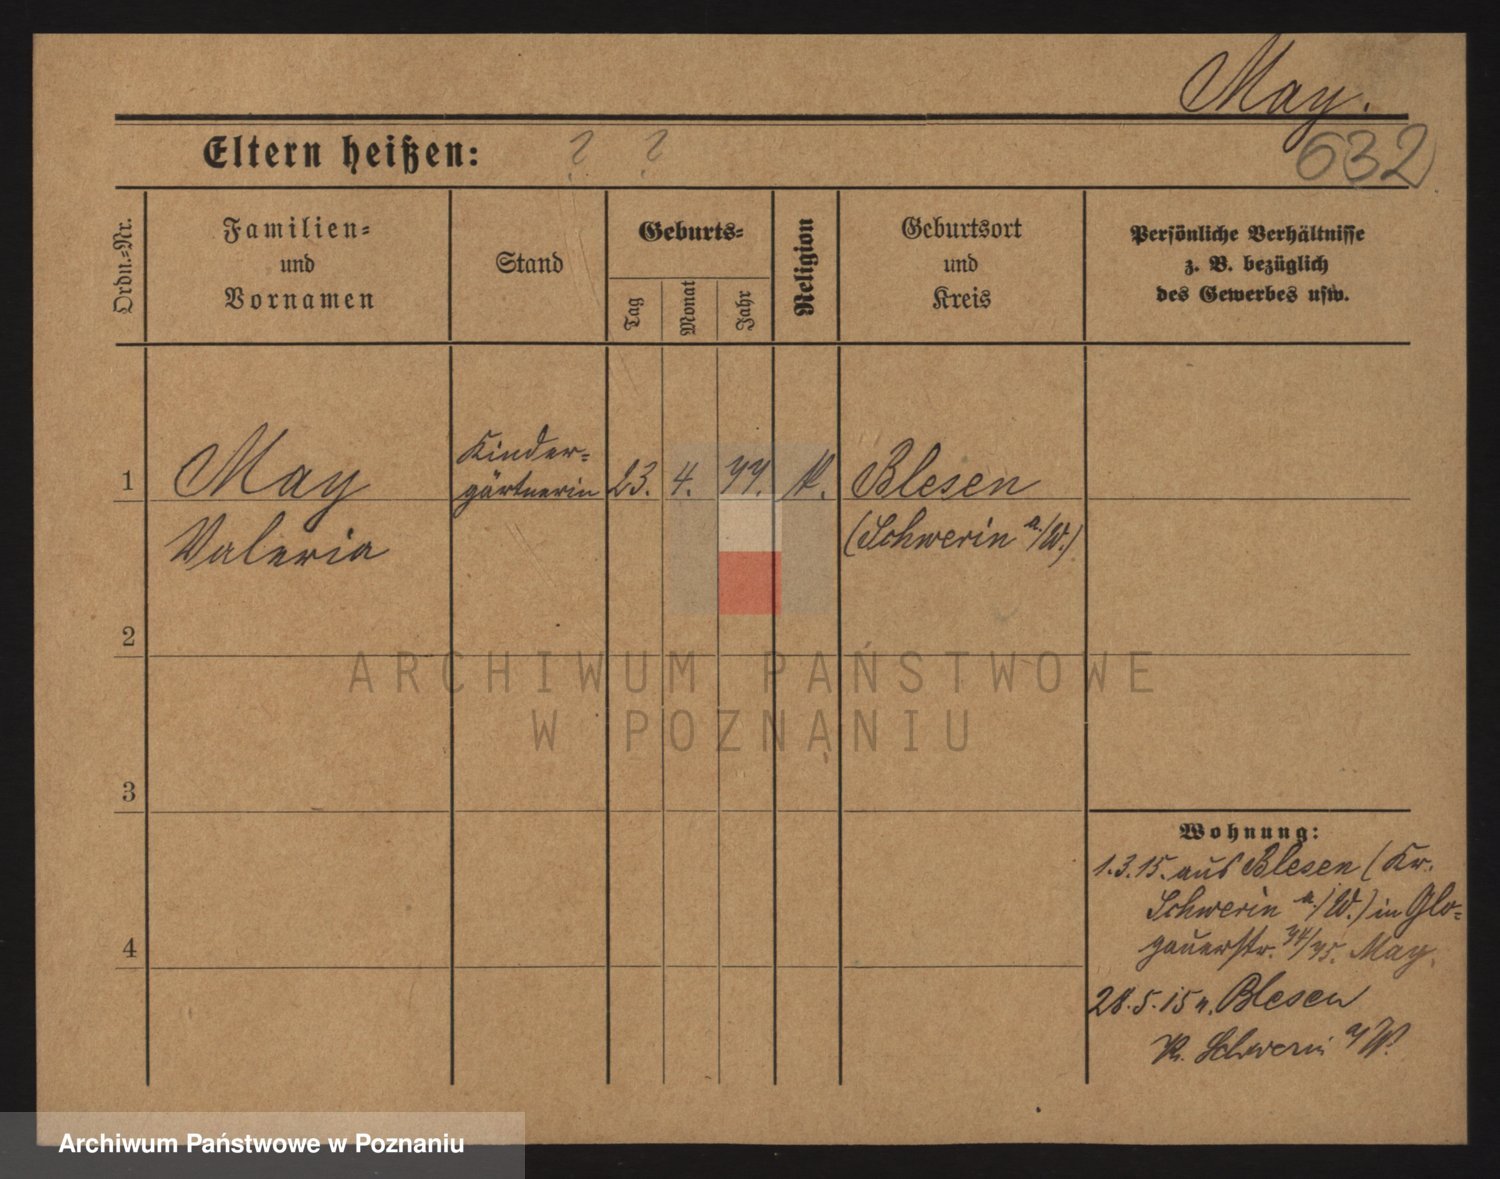 May.
632
Eltern heißen: ? ?
Ordn.-Nr.
Familien-
und
Vornamen
Stand
Geburts-
Tag
Monat
Jahr
Religion
Geburtsort
und
Kreis
Persönliche Verhältnisse
z. B. bezüglich
des Gewerbes usw.
1
May
Valeria
Kinder-
gärtnerin
23. 4.
Blesen
(Schwerin a./W.)
2
3
4
Wohnung:
1.3.15. aus Blesen (Kr.
Schwerin a./W.) in Glo-
gauerstr. May.
28.5.15 n. Blesen
Kr. Schwerin a/W.
ARCHIWUM PAŃSTWOWE
W POZNANIU
Archiwum Państwowe w Poznaniu